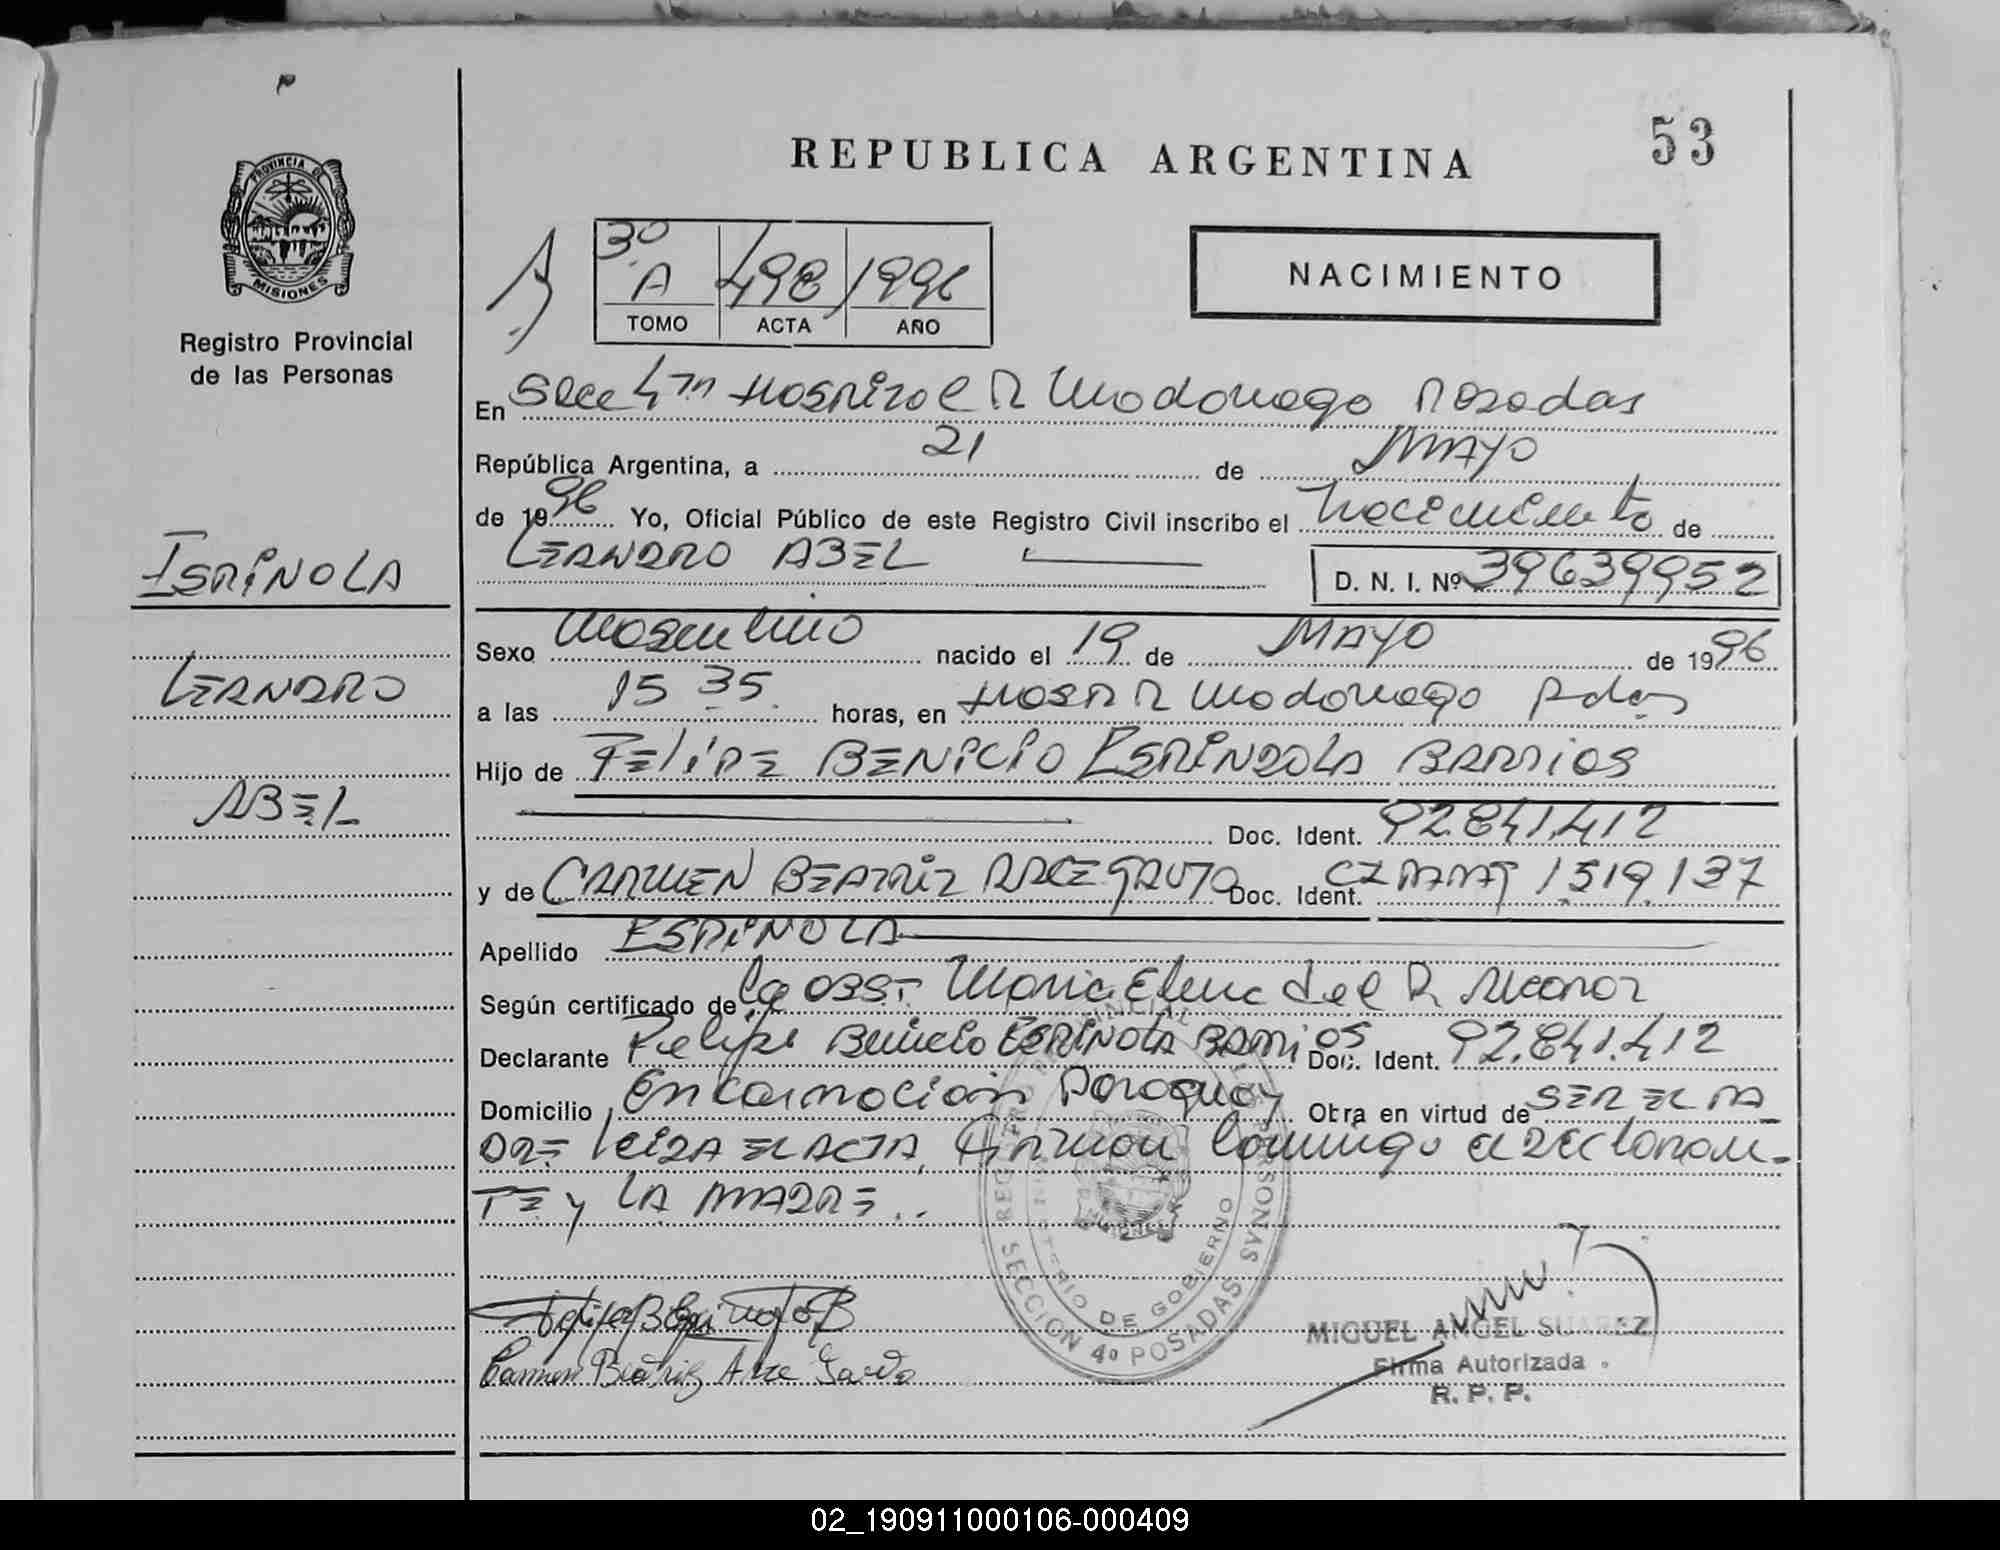 53
REPUBLICA ARGENTINA
PROVINCIA DE
MISIONES
Registro Provincial
de las Personas
3º
A 498 1996
TOMO ACTA AÑO
NACIMIENTO
En Secc 4ta Hospital R Madariaga Posadas
República Argentina, a 21 de MAYO
de 1996 Yo, Oficial Público de este Registro Civil inscribo el Nacimiento de
LEANDRO ABEL D. N. I. Nº 39639952
ESPINOLA
LEANDRO
ABEL
Sexo Masculino nacido el 19 de MAYO de 1996
a las 15 35 horas, en Hosp R Madariaga Pdas
Hijo de FELIPE BENICIO ESPINDOLA BARRIOS
Doc. Ident. 92.841.412
y de CARMEN BEATRIZ ARCE GAUTO Doc. Ident. 1.519.137
Apellido ESPINOLA
Según certificado de la OBST Maria Elena del R
Declarante Felipe Benicio ESPINOLA BARRIOS Doc. Ident. 92.841.412
Domicilio Encarnacion Paraguay Obra en virtud de SER EL PA
DRE leida EL ACTA, firman conmigo el DEClaran-
TE y LA MADRE..
REGISTRO PROVINCIAL DE LAS PERSONAS
MINISTERIO DE GOBIERNO
SECCION 4º POSADAS
Carmen Beatriz Arce Gauto
MIGUEL ANGEL SUAREZ
Firma Autorizada
R. P. P.
02_190911000106-000409